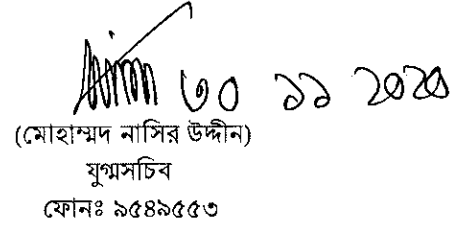 ৩০ ১১ ২০২০
(মোহাম্মদ নাসির উদ্দীন)
যুগ্মসচিব
ফোনঃ ৯৫৪৯৫৫৩